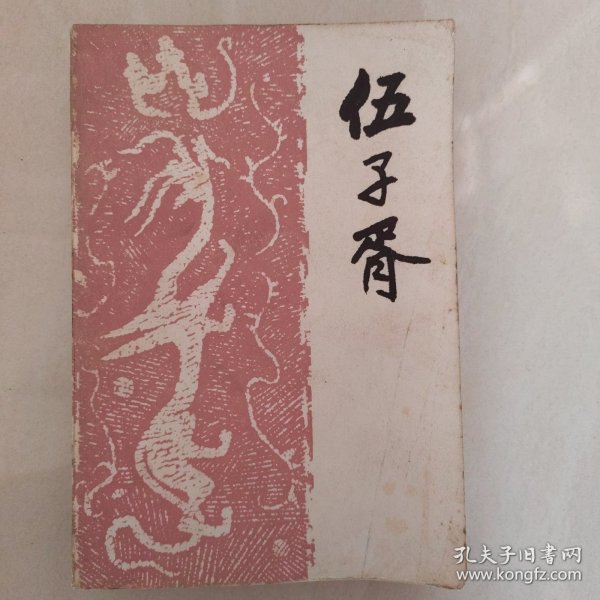 伍子胥
孔夫子旧書网
www.kongfz.com